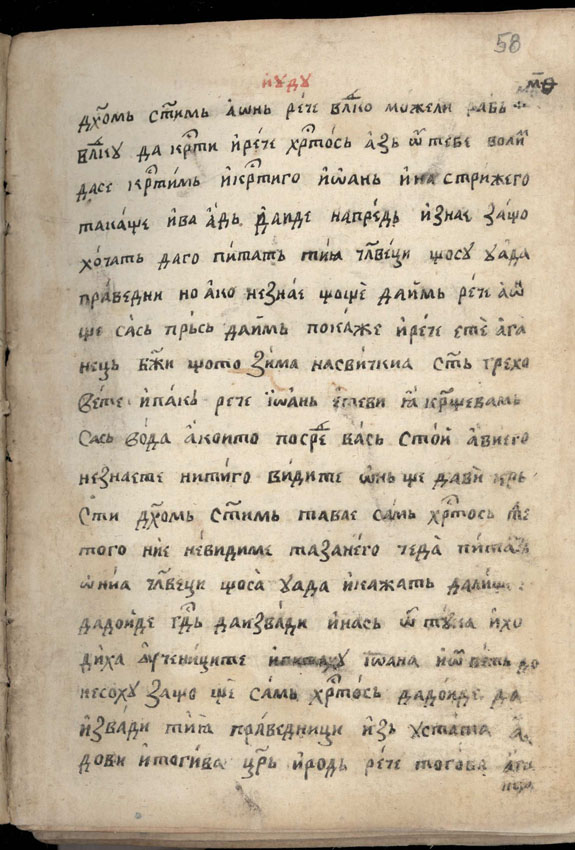 58
июду
дх҃омь ст҃имь а҆ѡнь рече вл҃ко можели рабь
вл҃ку да крⷭ҇ти и҆рече хрⷭ҇тось а҆зь ѿ тебе
дасе крⷭ҇тимь и҆крⷭ҇тиго и҆ѡань и҆на стрижего
такаѱе и҆ва а҆дь да иде напредь и҆знае защо
хоч҄ать даго питать тиꙗ чл҃вѣци щосу уада
праведни но а҆ко незнае щоще даимь рече а҆ѡ
ще сась прьсь даимь покаже и҆рече ете а҆га
нець бж҃и щото зима насвичкиа сть грехо
вете и҆паки рече і҆ѡань кр҃щевамь
сась вода а҆които посрⷣе вась стои а҆виего
незнаете нитиго видите ѡнь ще дави крь
сти дх҃омь ст҃имь тавае самь хрⷭ҇тось
того ние невидиме тазанего чеда
ѡниа чл҃вѣци щоса уада и҆кажать далище
дадоиде гдⷭ҇ь даизвади и҆нась ѿ тука и҆хо
диха а҆учениците і҆ѡана и҆ѿветь до
несоху защо ще самь хрⷭ҇тось дадоиде да
и҆звади тиꙗ праведници и҆зь устата а҆
дови и҆тогива цр҃ь и҆родь рече тогова а҆га
неца